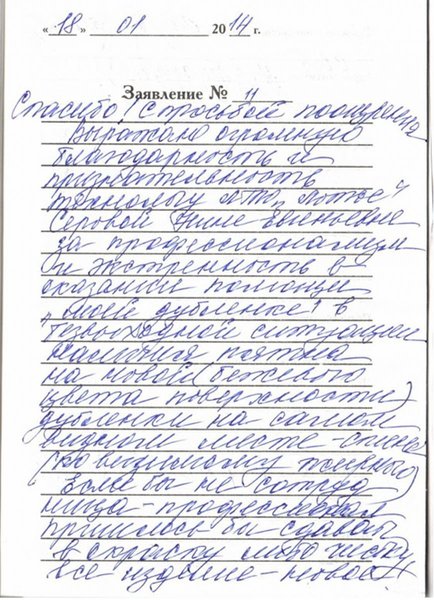 « 18 » 01 2014 г.
Заявление № 11
Спасибо! (с просьбой поощрения
Выражаю огромную
благодарность и
признательность
технологу
Серовой Нине Евгеньевне
за профессионализм
и экстренность в
оказании помощи
„моей дубленке" в
безвыходной ситуации
наличия пятна
на новой (бежевого
цвета поверхности)
дубленки на самом
видном месте - спине
(по видимому жирного)
Если бы не сотруд
ница - профессионал
пришлось бы сдавать
в окраску либо чистку
все изделие - новое!